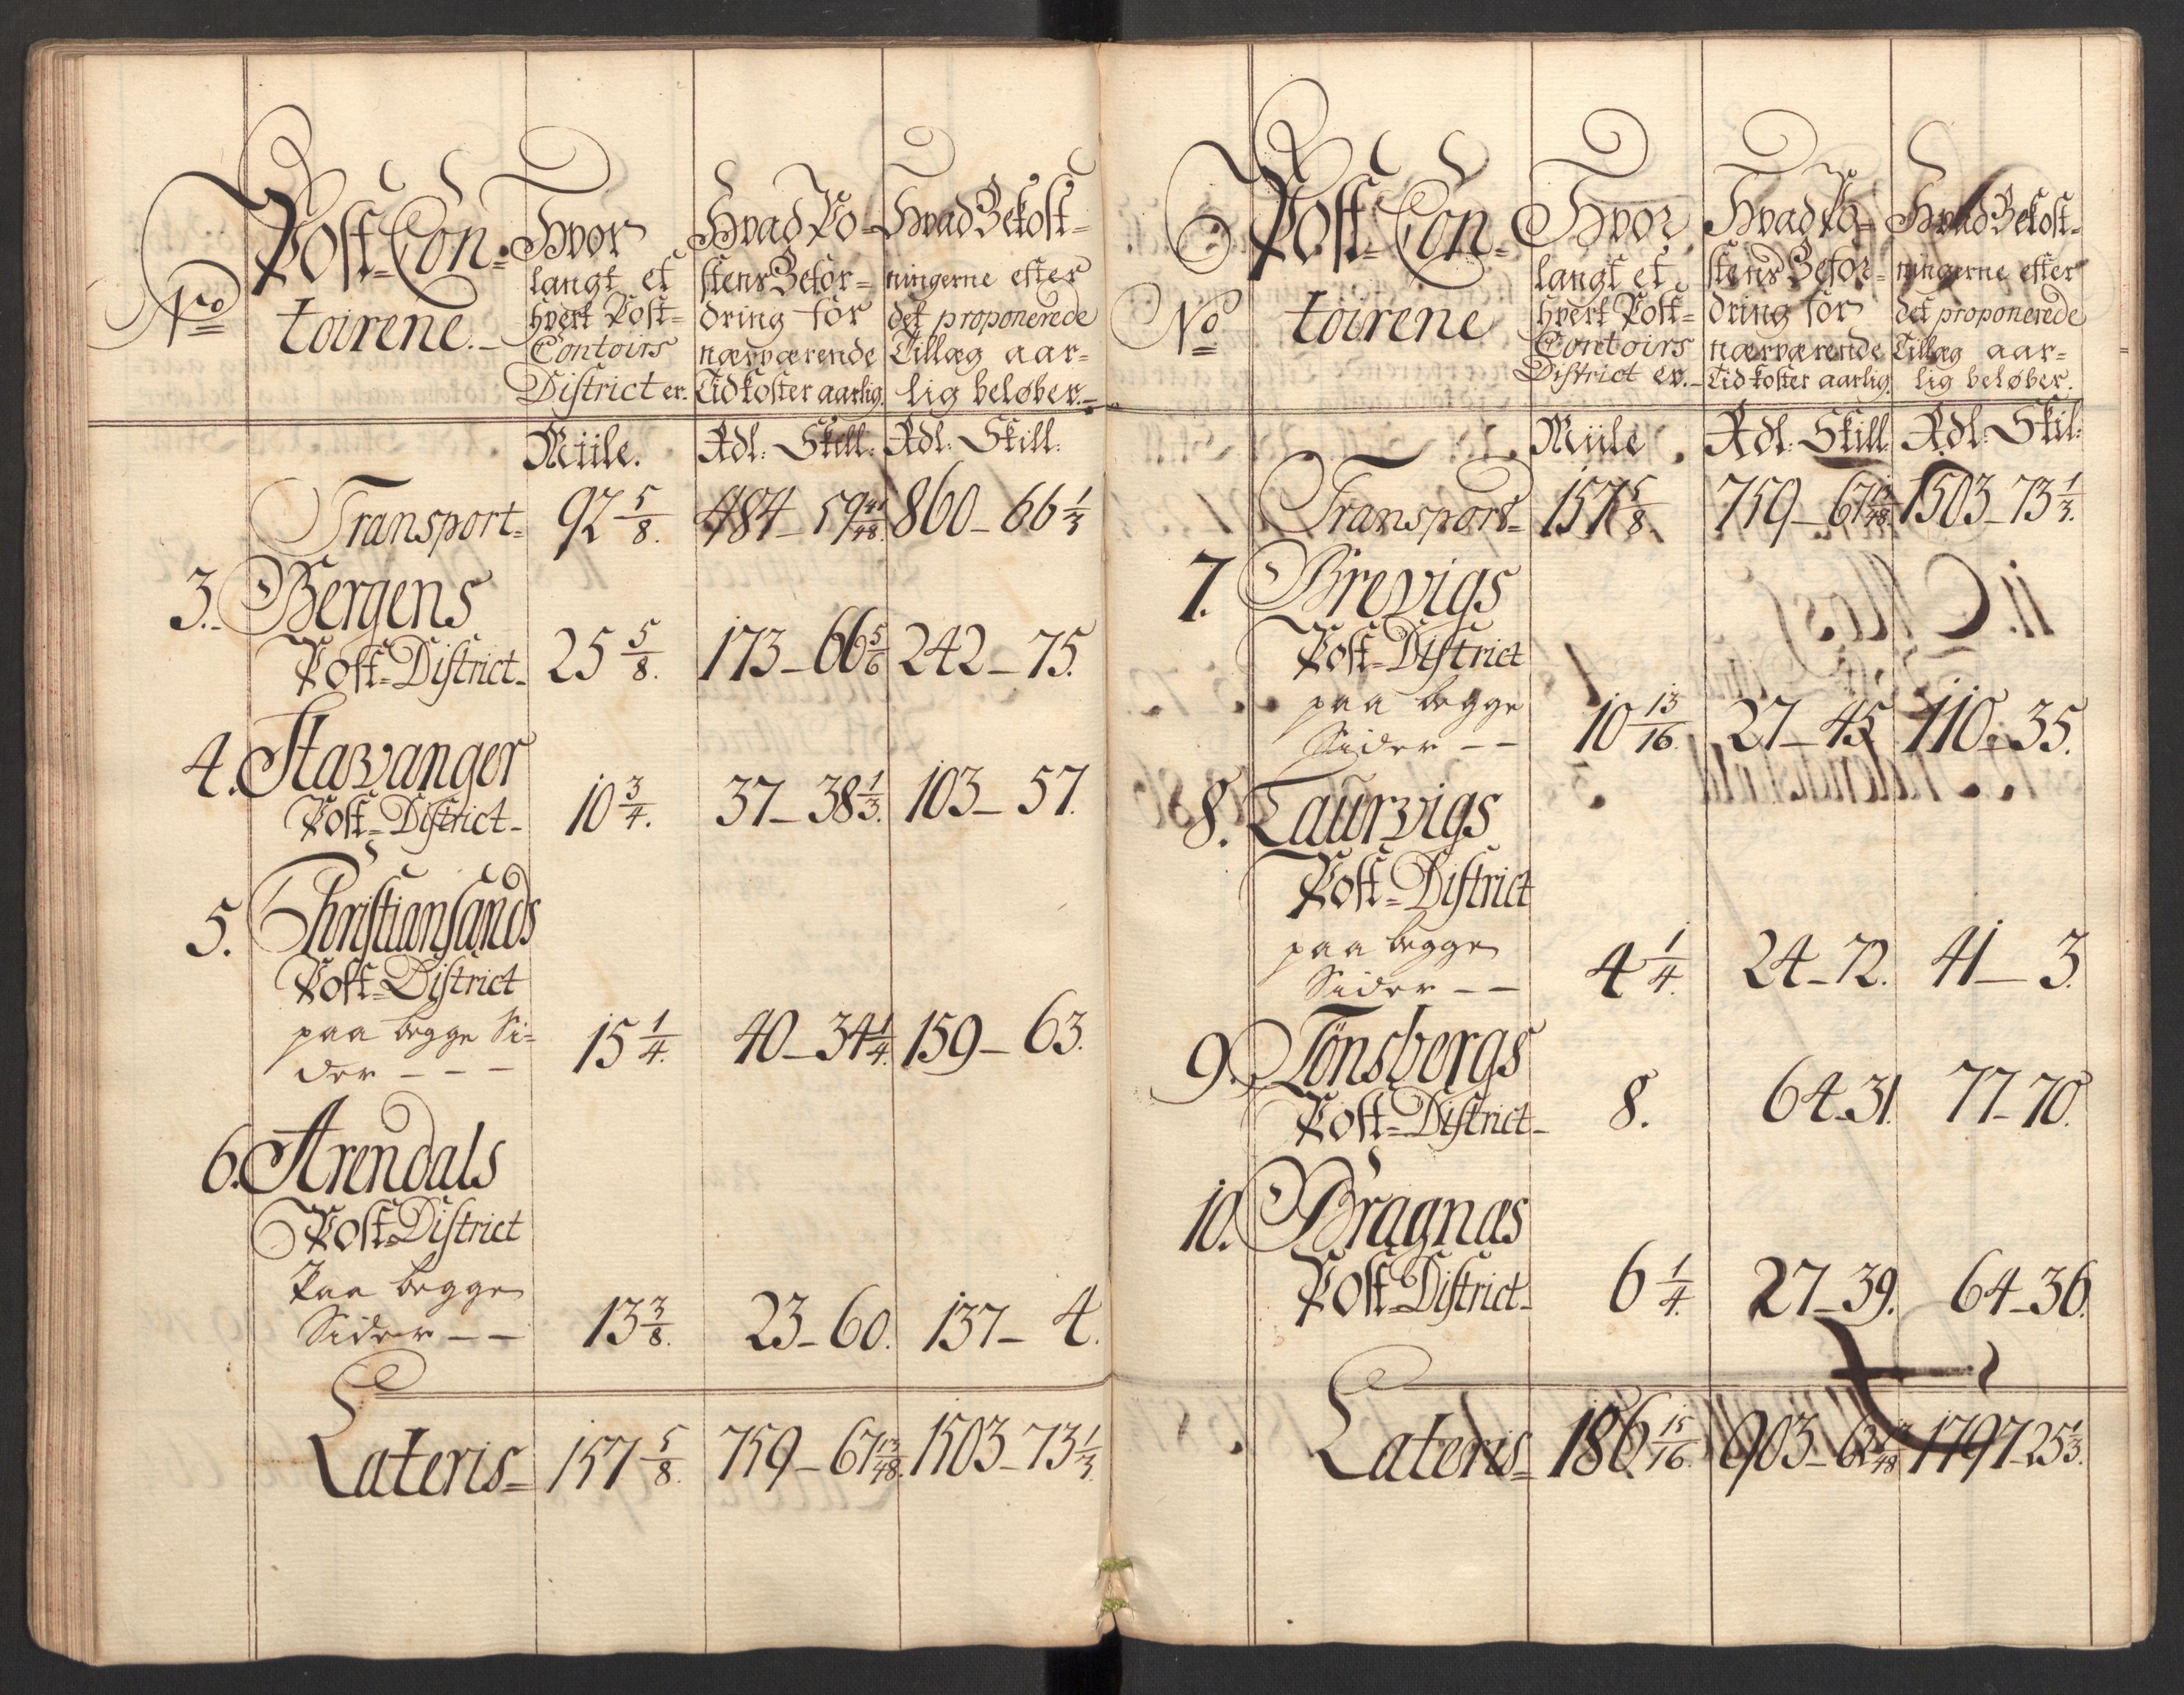 No
Post-Con-
toirene.
Hvor
langt et
hvert Post-
Contoirs
District er.
Hvad Po-
stens Befor-
dring for
nærværende
Tid koster aarlig.
Hvad Bekost-
ningerne efter
det proponerede
Tillæg aar-
lig beløber.
Miile. Rdl: Skill: Rdl: Skill:
Transport- 92 5/8. 484-59 41/48. 860-66 1/3
3. Bergens
Post-District- 25 5/8. 173-66 5/6 242-75.
4. Stavanger
Post-District- 10 3/4. 37-38 1/3. 103-57.
5. Christiansands
Post-District
paa begge Si-
der - - - 15 1/4. 40-34 1/4. 159-63.
6. Arendals
Post-District
Paa begge
Sider - - 13 3/8. 23-60. 137-4.
Lateris- 157 5/8. 759-67 13/48. 1503-73 1/3.
No
Post-Con-
toirene
Hvor
langt et
hvert Post-
Contoirs
District er.
Hvad Po-
stens Befor-
dring for
nærværende
Tid koster aarlig.
Hvad Bekost-
ningerne efter
det proponerede
Tillæg aar-
lig beløber.
Miile Rdl: Skill: Rdl: Skil:
Transport- 157 5/8. 759-67 13/48. 1503-73 1/3.
7. Brevigs
Post-District
paa begge
Sider - - 10 13/16. 27-45 110-35.
8. Laurvigs
Post-District
paa begge
Sider - - 4 1/4. 24-72. 41-3.
9. Tønsbergs
Post-District- 8. 64-31. 77-70.
10. Bragnæs
Post-District- 6 1/4. 27-39. 64-36.
Lateris- 186 15/16. 903-62 13/48 1797-25 1/3.